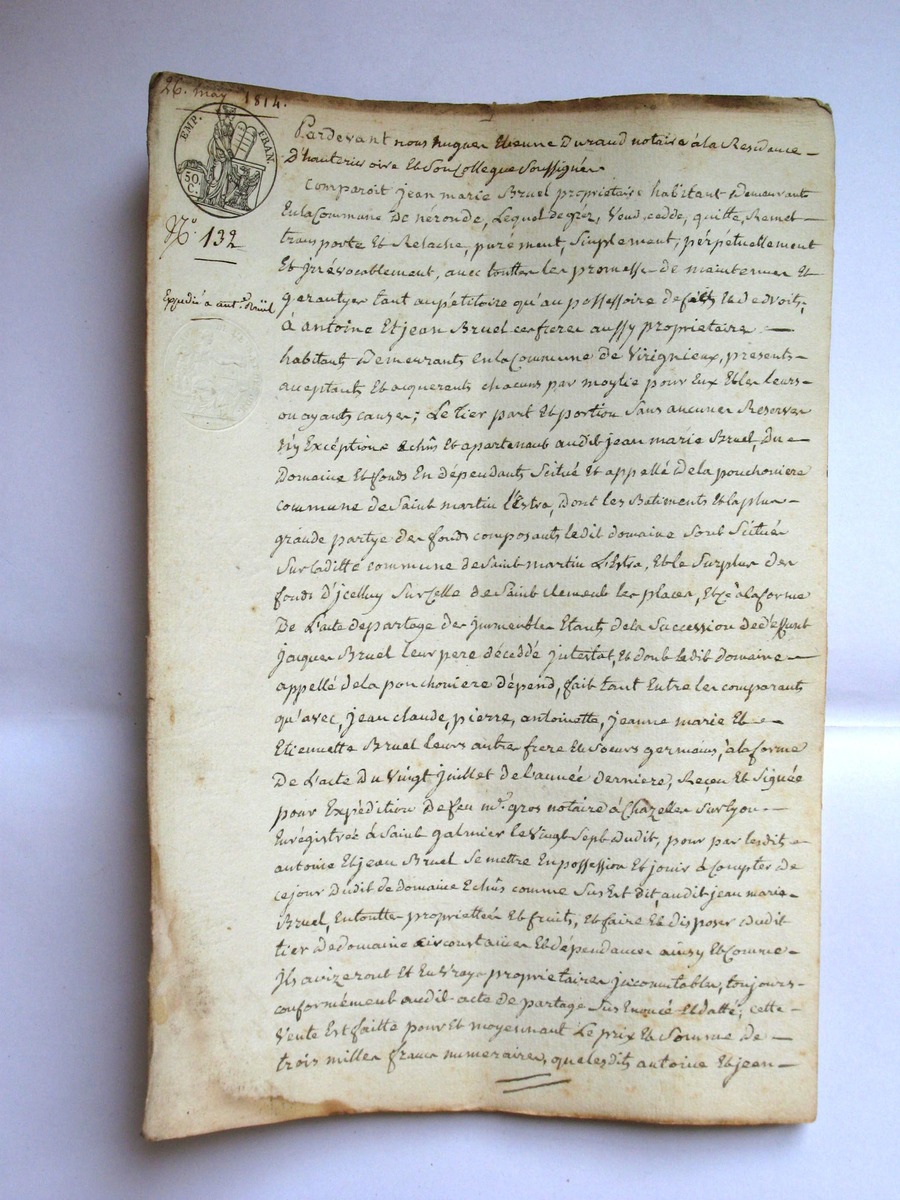 26. may 1814.
EMP. FRAN.
50 C.
N.º 132
Expédié a ant.e Bruël
Pardevant nous huguer Etienne Duraud notaire à la Residence
D'hauterivoire Et Son Collegue Soussignés
Comparoit jean marie Bruel propriétaire habitant & demeurant
En la Commune De néronde, Lequel de gréz, Vend, cedde, quitte, Remet
transporte Et Relache, purement, Simplement, perpétuellement
Et jrrévocablement, avec toutter les promesse de maintenuer Et
garantyer tant au pétitoire qu'au possessoire de faits Et de droits,
à antoine Et jean Bruel ces freres aussy propriétaires
habitants & Demeurants en la Commune de Virignieux, presents
acceptants Et acquerents chacuns par moytié pour Eux Et les leurs
ou ayants causes; Le tier part Et portion Sans aucunes Reserves
ny Exceptions échûs Et apartenant audit jean marie Bruel, Du
Domaine Et fonds En dépendants Scitué Et appellé de la pouchoniere
commune de Saint martin l'Estra, dont les Batiments Et la plus
grande partye des fonds composants ledit domaine Sont Scitués
Sur laditte commune de Saint martin L'Estra, Et le Surplus des
fonds D'jcelluy Sur Celle de Saint clement les places, Et ce à la forme
De L'acte de partage des jmmeubles Etants de la Succession de deffunt
jacques Bruel leur pere décéddé jntestat, Et dont ledit domaine
appellé de la pouchoniere dépend, fait tant Entre les comparants
qu'avec, jean claude, pierre, antoinette, jeanne marie Et
Etiennette Bruel leurs autres frere Et Soeurs germains, à la forme
De L'acte Du Vingt juillet de l'année derniere, Reçeu Et Signée
pour Expédition De feu m.e gros notaire à Chazelles Sur lyon
Enrégistrée à Saint galmier le Vingt Sept dudit, pour par lesdits
antoine Et jean Bruel Se mettre En possession Et jouir à Compter de
ce jour Dudit de domaine Echûs comme Sus Est dit, audit jean marie
Bruel, En toutter proprietteés Et fruits, Et faire Et disposer dudit
tier de domaine circonstances Et dépendances ainsy Et Comme
Ils avizeront Et En Vrays propriétaires jncomutables, toujours
conformément audit acte de partage Sus Enoncé Et datté; cette
Vente Est faitte pour Et moyennant Le prix Et Somme de
trois milles francs numeraires, que lesdits antoine Et jean